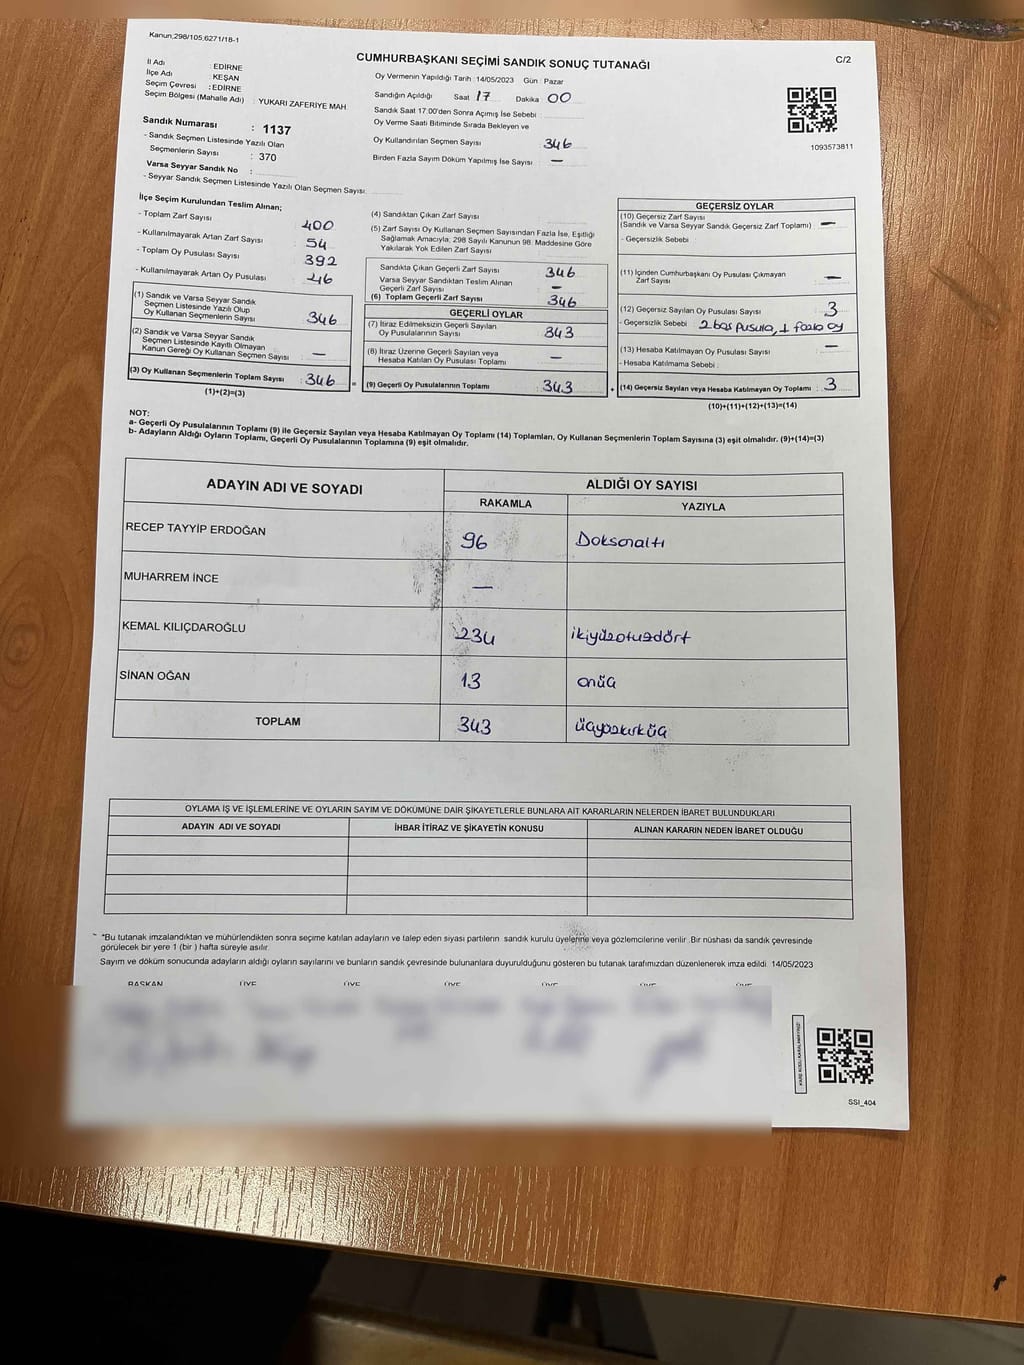 Kanun,298/105,6271/18-1
CUMHURBAŞKANI SEÇİMİ SANDIK SONUÇ TUTANAĞI
C/2
İl Adı : EDİRNE
İlçe Adı : KEŞAN
Seçim Çevresi : EDİRNE
Seçim Bölgesi (Mahalle Adı) : YUKARI ZAFERİYE MAH.
Sandık Numarası : 1137
- Sandık Seçmen Listesinde Yazılı Olan
Seçmenlerin Sayısı : 370
Varsa Seyyar Sandık No :
- Seyyar Sandık Seçmen Listesinde Yazılı Olan Seçmen Sayısı:
Oy Vermenin Yapıldığı Tarih : 14/05/2023 Gün : Pazar
Sandığın Açıldığı Saat 17 Dakika 00
Sandık Saat 17:00'den Sonra Açımış İse Sebebi :
Oy Verme Saati Bitiminde Sırada Bekleyen ve
Oy Kullandırılan Seçmen Sayısı 346
Birden Fazla Sayım Döküm Yapılmış İse Sayısı —
1093573811
İlçe Seçim Kurulundan Teslim Alınan;
- Toplam Zarf Sayısı : 400
- Kullanılmayarak Artan Zarf Sayısı : 54
- Toplam Oy Pusulası Sayısı : 392
- Kullanılmayarak Artan Oy Pusulası : 46
(1) Sandık ve Varsa Seyyar Sandık
Seçmen Listesinde Yazılı Olup
Oy Kullanan Seçmenlerin Sayısı 346
(2) Sandık ve Varsa Seyyar Sandık
Seçmen Listesinde Kayıtlı Olmayan
Kanun Gereği Oy Kullanan Seçmen Sayısı —
(3) Oy Kullanan Seçmenlerin Toplam Sayısı : 346 =
(1)+(2)=(3)
(4) Sandıktan Çıkan Zarf Sayısı
(5) Zarf Sayısı Oy Kullanan Seçmen Sayısından Fazla İse, Eşitliği
Sağlamak Amacıyla, 298 Sayılı Kanunun 98. Maddesine Göre
Yakılarak Yok Edilen Zarf Sayısı
Sandıkta Çıkan Geçerli Zarf Sayısı 346
Varsa Seyyar Sandıktan Teslim Alınan
Geçerli Zarf Sayısı —
(6) Toplam Geçerli Zarf Sayısı 346
GEÇERLİ OYLAR
(7) İtiraz Edilmeksizin Geçerli Sayılan
Oy Pusulalarının Sayısı 343
(8) İtiraz Üzerine Geçerli Sayılan veya
Hesaba Katılan Oy Pusulası Toplamı —
(9) Geçerli Oy Pusulalarının Toplamı 343 +
GEÇERSİZ OYLAR
(10) Geçersiz Zarf Sayısı
(Sandık ve Varsa Seyyar Sandık Geçersiz Zarf Toplamı) —
- Geçersizlik Sebebi
(11) İçinden Cumhurbaşkanı Oy Pusulası Çıkmayan
Zarf Sayısı —
(12) Geçersiz Sayılan Oy Pusulası Sayısı 3
- Geçersizlik Sebebi 2 boş pusula, 1 fazla oy
(13) Hesaba Katılmayan Oy Pusulası Sayısı —
- Hesaba Katılmama Sebebi :
(14) Geçersiz Sayılan veya Hesaba Katılmayan Oy Toplamı : 3
(10)+(11)+(12)+(13)=(14)
NOT:
a- Geçerli Oy Pusulalarının Toplamı (9) ile Geçersiz Sayılan veya Hesaba Katılmayan Oy Toplamı (14) Toplamları, Oy Kullanan Seçmenlerin Toplam Sayısına (3) eşit olmalıdır. (9)+(14)=(3)
b- Adayların Aldığı Oyların Toplamı, Geçerli Oy Pusulalarının Toplamına (9) eşit olmalıdır.
ADAYIN ADI VE SOYADI
ALDIĞI OY SAYISI
RAKAMLA YAZIYLA
RECEP TAYYİP ERDOĞAN 96 Doksanaltı
MUHARREM İNCE —
KEMAL KILIÇDAROĞLU 234 ikiyüzotuzdört
SİNAN OĞAN 13 onüç
TOPLAM 343 üçyüzkırküç
OYLAMA İŞ VE İŞLEMLERİNE VE OYLARIN SAYIM VE DÖKÜMÜNE DAİR ŞİKAYETLERLE BUNLARA AİT KARARLARIN NELERDEN İBARET BULUNDUKLARI
ADAYIN ADI VE SOYADI İHBAR İTİRAZ VE ŞİKAYETİN KONUSU ALINAN KARARIN NEDEN İBARET OLDUĞU
*Bu tutanak imzalandıktan ve mühürlendikten sonra seçime katılan adayların ve talep eden siyasi partilerin sandık kurulu üyelerine veya gözlemcilerine verilir .Bir nüshası da sandık çevresinde
görülecek bir yere 1 (bir ) hafta süreyle asılır.
Sayım ve döküm sonucunda adayların aldığı oyların sayılarını ve bunların sandık çevresinde bulunanlara duyurulduğunu gösteren bu tutanak tarafımızdan düzenlenerek imza edildi. 14/05/2023
BAŞKAN ÜYE ÜYE ÜYE ÜYE ÜYE ÜYE
SSI_404